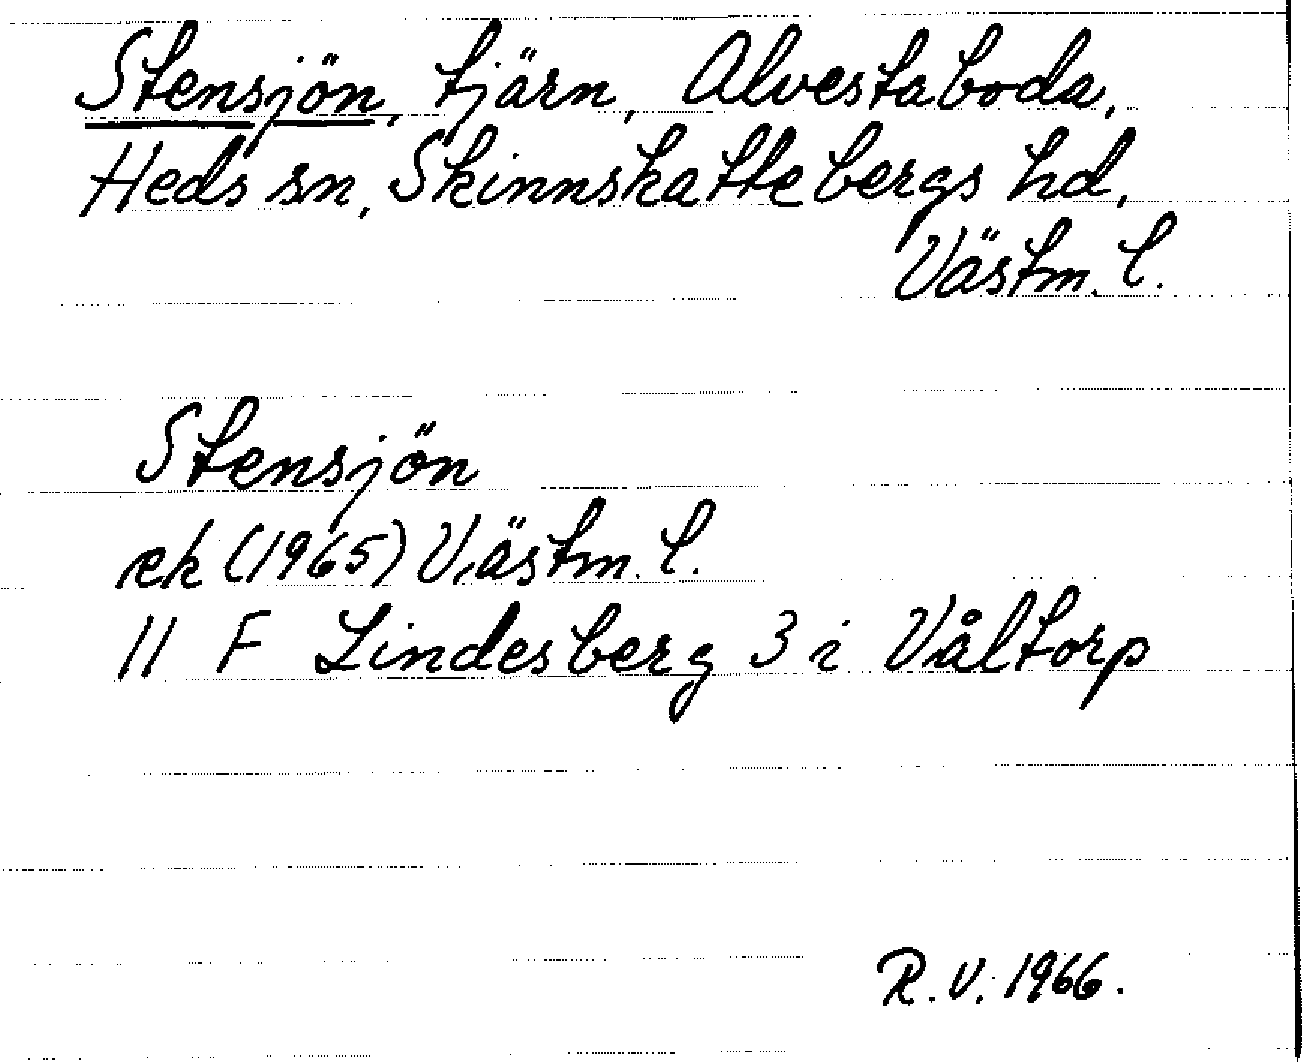 Stensjön, tjärn, Alvestaboda,
Heds sn, Skinnskattebergs hd,
Västm. l.
Stensjön
ek (1965) Västm. l.
11 F Lindesberg 3 i Våltorp
R.V. 1966.